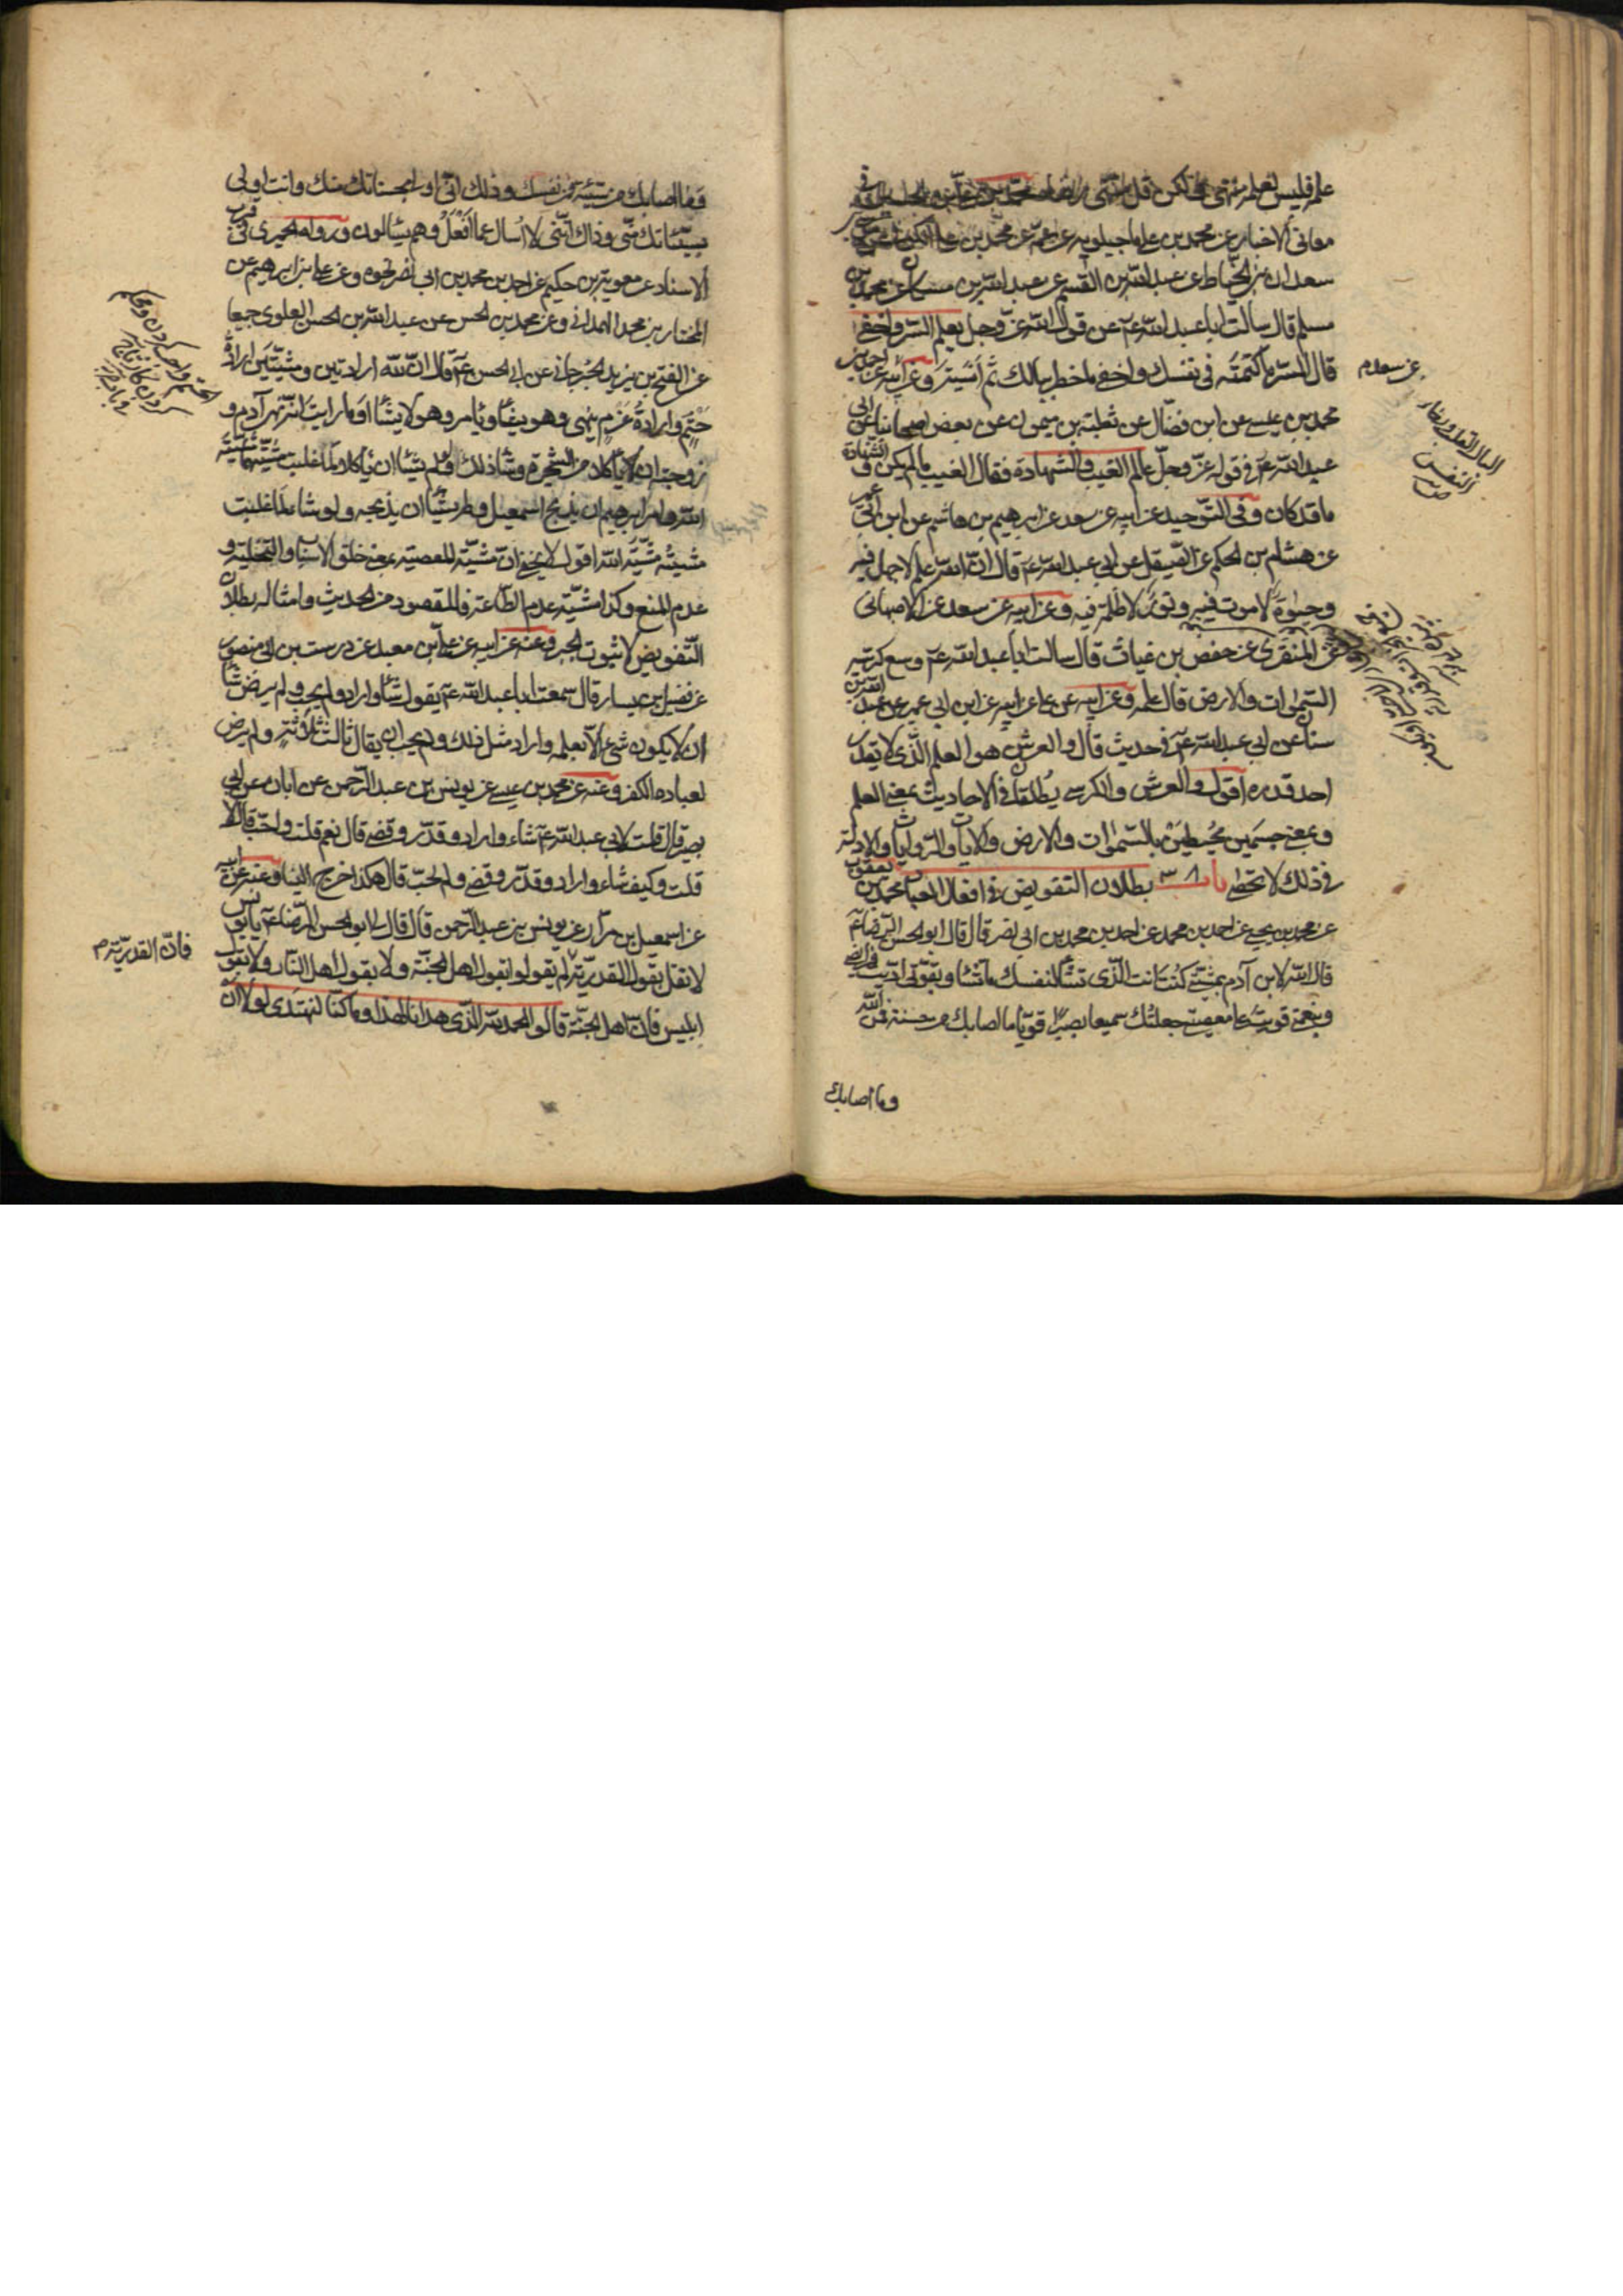 علمه فليس لعلمه منتهى ولكن قل منتهى رضاه
معاني الاخبار عن محمد بن علي ماجيلويه عن عمه عن محمد بن علي الكوفي عن موسى بن
سعدان بن الحناط عن عبد الله بن القسم عن عبد الله بن مسكان عن محمد بن
مسلم قال سالت ابا عبد الله عم عن قول الله عز وجل يعلم السر واخفى
قال السر ما كتمته في نفسك واخفى ما خطر ببالك ثم انسيته وعن ابيه عن احمد بن
محمد بن عيسى عن ابن فضال عن ثعلبة بن ميمون عن بعض اصحابنا عن ابي
عبد الله عم في قوله عز وجل عالم الغيب والشهادة فقال الغيب ما لم يكن والشهادة
ما قد كان وفي التوحيد عن ابيه عن سعد عن ابرهيم بن هاشم عن ابن ابي عمير
عن هشام بن الحكم عن الصيقل عن ابي عبد الله عم قال ان الله علم لا جهل فيه
وحيوة لا موت فيه ونور لا ظلمة فيه وعن ابيه عن سعد عن الاصبهاني
عن المنقري عن حفص بن غياث قال سالت ابا عبد الله عم وسع كرسيه
السموات والارض قال علمه وعن ابيه عن علي عن ابيه عن ابن ابي عمير عن عبد الله بن
سنان عن ابي عبد الله عم في حديث قال والعرش هو العلم الذي لا يقدر
احد قدره اقول والعرش والكرسي يطلقان في الاحاديث بمعنى العلم
وبمعنى جسمين محيطين بالسموات والارض والايات والروايات والادلة
في ذلك لا تحصى باب ٣٨ بطلان التفويض في افعال العباد محمد بن يعقوب
عن محمد بن يحيى عن احمد بن محمد عن احمد بن محمد بن ابي نصر قال قال ابو الحسن الرضا عم
قال الله لابن آدم بمشيتي كنت انت الذي تشاء لنفسك ما تشاء وبقوتي اديت فرائضي
وبنعمتي قويت على معصيتي جعلتك سميعا بصيرا قويا ما اصابك من حسنة فمن الله
وما اصابك
عن سعد م
وما اصابك من سيئة فمن نفسك وذلك اني اولى بحسناتك منك وانت اولى
بسيئاتك مني وذاك انني لا اسال عما افعل وهم يسالون ورواه الحميري في قرب
الاسناد عن معوية بن حكيم عن احمد بن محمد بن ابي نصر نحوه وعن علي بن ابرهيم عن
المختار بن محمد الهمداني وعن محمد بن الحسن عن عبد الله بن الحسن العلوي جميعا
عن الفتح بن يزيد الجرجاني عن ابي الحسن عم قال ان لله ارادتين ومشيتين ارادة
حتم وارادة عزم ينهى وهو يشاء ويامر وهو لا يشاء او ما رايت انه نهى آدم و
زوجته ان ياكلا من الشجرة وشاء ذلك ولو لم يشاء ان ياكلا لما غلبت مشيتهما مشية
الله وامر ابرهيم ان يذبح اسمعيل ولم يشاء ان يذبحه ولو شاء لما غلبت
مشيته مشية الله اقول لا يخفى ان مشية المعصية بمعنى خلق الاسباب والتخلية و
عدم المنع وكذا مشية عدم الطاعة فالمقصود من الحديث وامثاله بطلان
التفويض لا ثبوت الجبر وعنه عن ابيه عن علي بن معبد عن درست بن ابي منصور
عن فضيل بن يسار قال سمعت ابا عبد الله عم يقول شاء واراد ولم يحب ولم يرض شاء
ان لا يكون شيء الا بعلمه واراد مثل ذلك ولم يحب ان يقال ثالث ثلاثة ولم يرض
لعباده الكفر وعنه عن محمد بن عيسى عن يونس بن عبد الرحمن عن ابان عن ابي
بصير قال قلت لابي عبد الله عم شاء واراد وقدر وقضى قال نعم قلت واحب قال لا
قلت وكيف شاء واراد وقدر وقضى ولم يحب قال هكذا خرج الينا وعنه عن ابيه
عن اسمعيل بن مرار عن يونس بن عبد الرحمن قال قال لي ابو الحسن الرضا عم يا يونس
لا تقل بقول القدرية لم يقولوا بقول اهل الجنة ولا بقول اهل النار ولا بقول
ابليس فان اهل الجنة قالوا الحمد لله الذي هدانا لهذا وما كنا لنهتدي لولا ان
فان القدرية م